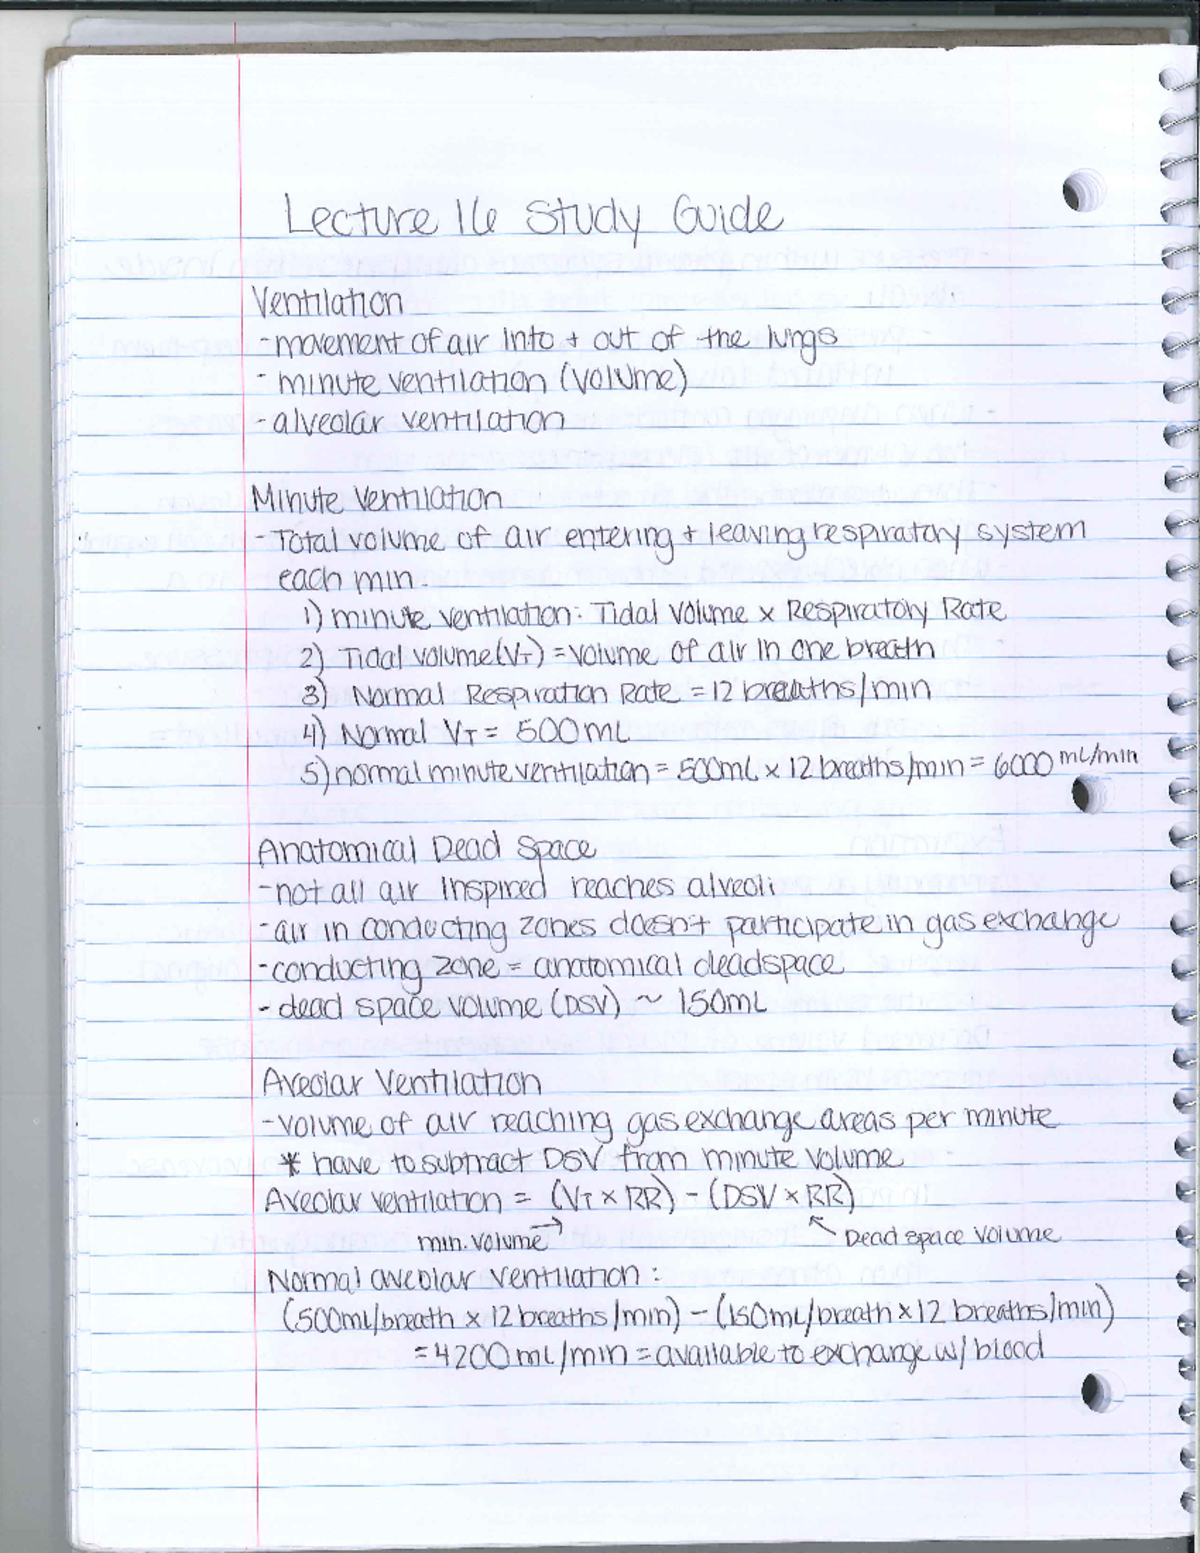 Lecture 16 Study Guide
Ventilation
- movement of air into + out of the lungs
- minute ventilation (volume)
- alveolar ventilation
Minute Ventilation
- Total volume of air entering + leaving respiratory system
each min.
1) minute ventilation: Tidal Volume x Respiratory Rate
2) Tidal volume (VT) = volume of air in one breath
3) Normal Respiration Rate = 12 breaths/min
4) Normal VT = 500mL
5) normal minute ventilation = 500mL x 12 breaths/min = 6000 mL/min
Anatomical Dead Space
- not all air inspired reaches alveoli
- air in conducting zones doesn't participate in gas exchange
- conducting zone = anatomical deadspace
- dead space volume (DSV) ~ 150mL
Aveolar Ventilation
- volume of air reaching gas exchange areas per minute
* have to subtract DSV from minute volume
Aveolar ventilation = (VT x RR) - (DSV x RR)
min. volume → ↖ Dead space volume
Normal aveolar ventilation:
(500mL/breath x 12 breaths/min) - (150mL/breath x 12 breaths/min)
= 4200 mL/min = available to exchange w/ blood